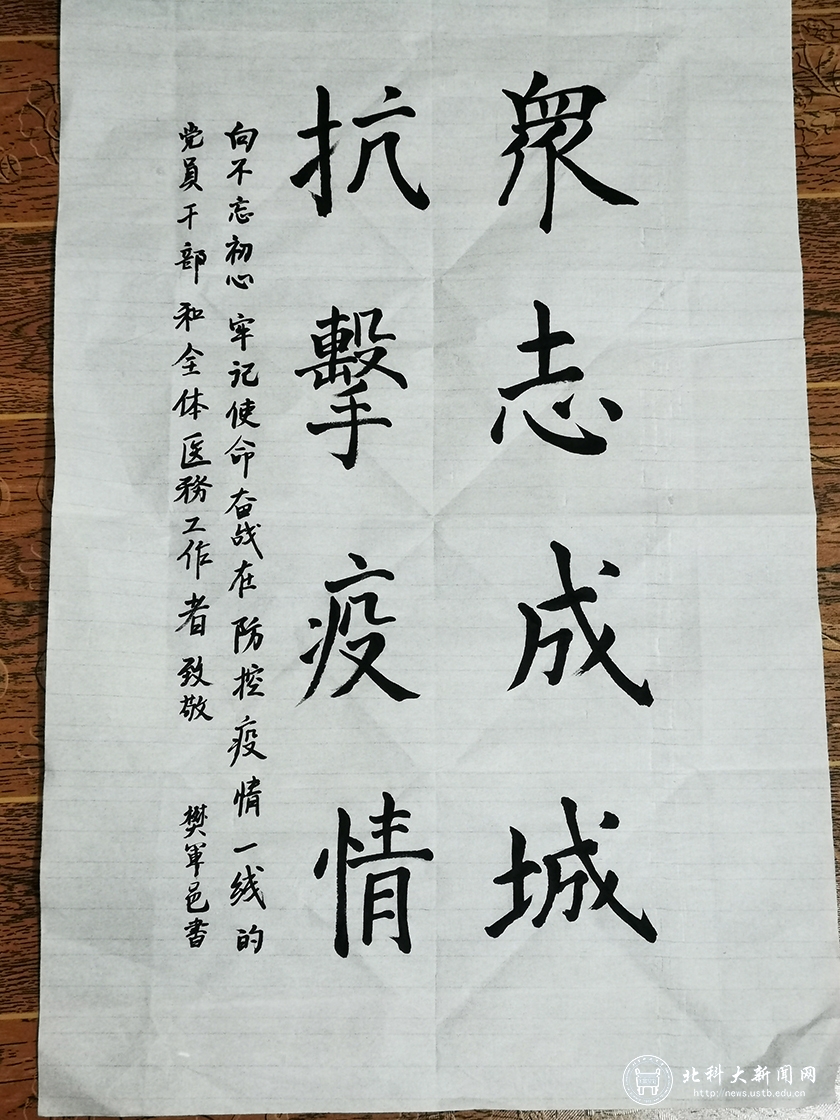 眾志成城
抗擊疫情
向不忘初心牢记使命奋战在防控疫情一线的
党員干部和全体医務工作者致敬
樊軍邑書
北科大新闻网
http://news.ustb.edu.cn